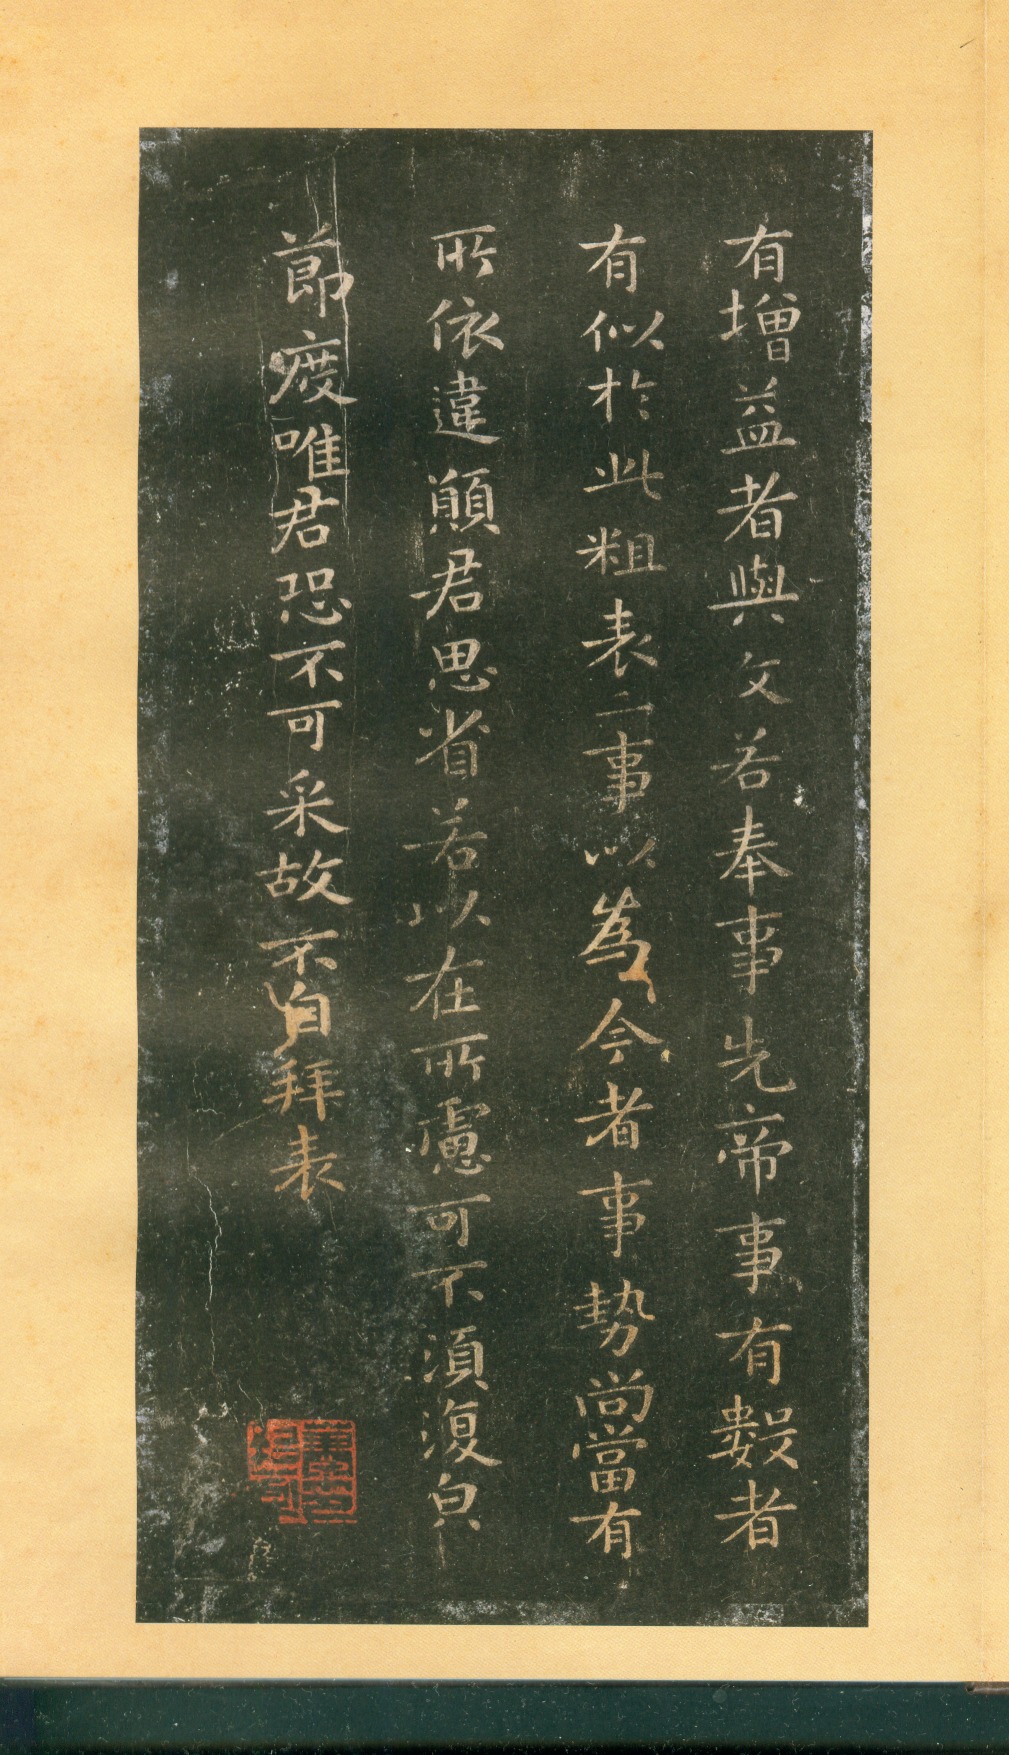 有增益者與文若奉事先帝事有數者
有似於此粗表二事以為今者事勢尚當有
所依違願君思省若以在所慮可不須復皃
節度唯君恐不可采故不自拜表